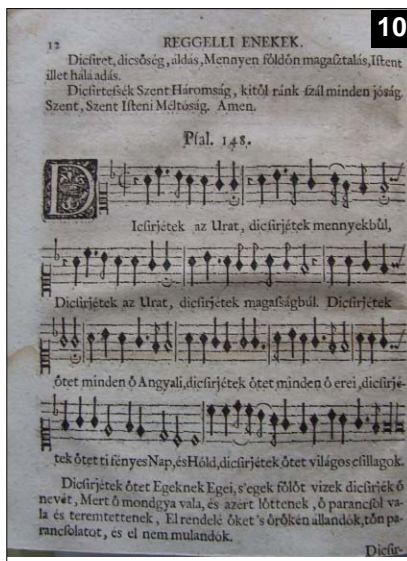 10
12 REGGELLI ENEKEK.
Dicſiret, dicsőség, áldás, Mennyen főldőn magaſztalás, Iſtent
illet hála adás.
Dicſirteſsék Szent Háromság, kitől ránk ſzál minden jóság.
Szent, Szent Iſteni Méltóság. Amen.
Pſal. 148.
DIcſirjétek az Urat, dicſirjétek mennyekbűl,
Dicſirjétek az Urat, dicſirjétek magaſságbúl. Dicſirjétek
őtet minden ő Angyali, dicſirjétek őtet minden ő erei, dicſirjé-
tek őtet ti fényes Nap, és Hóld, dicſirjétek őtet világos cſillagok.
Dicſirjétek őtet Egeknek Egei, s'egek főlőt vizek dicſirjék ő
nevét, Mert ő mondgya vala, és azért lőttenek, ő parancſol va-
la és teremtettenek, El rendelé őket 's őrőkén állandók, tőn pa-
rancſolatot, és el nem mulandók.
Dicſir-